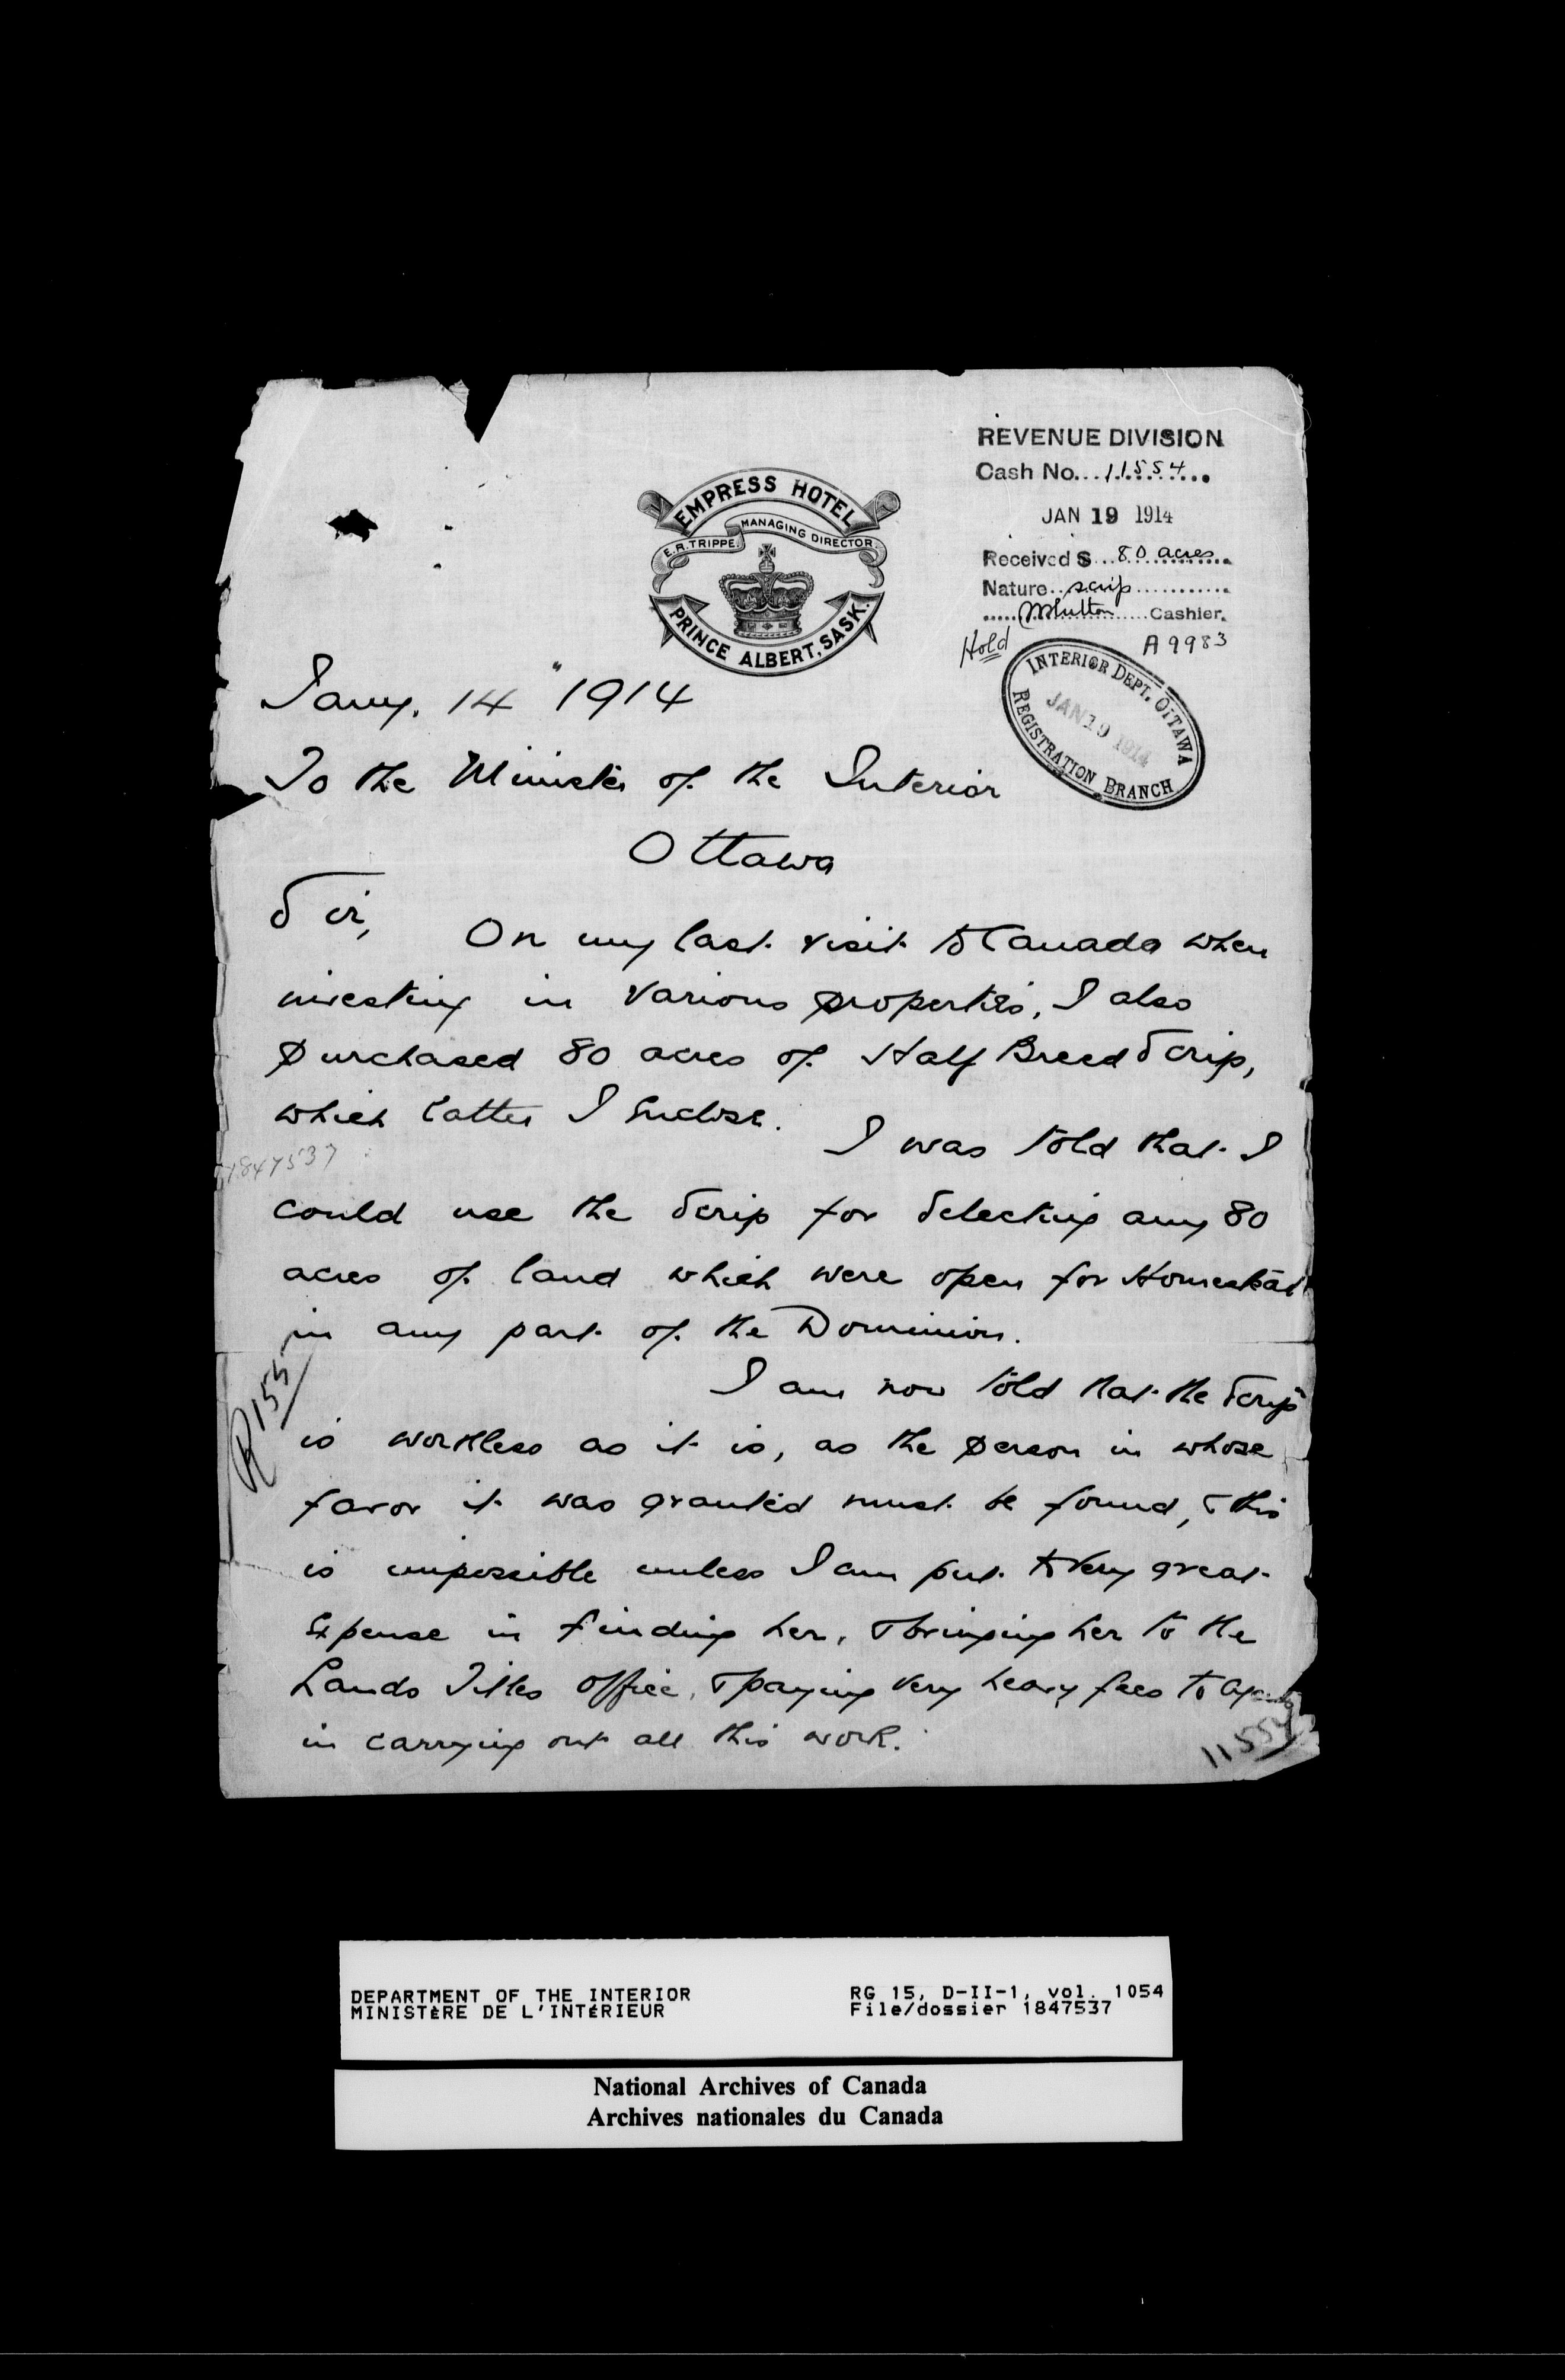 REVENUE DIVISION
Cash No. 11554
JAN 19 1914
Received $ 80 acres
Nature scrip
Cashier.
A 9983
Hold
EMPRESS HOTEL
E.R. TRIPPE. MANAGING DIRECTOR.
PRINCE ALBERT, SASK.
INTERIOR DEPT. OTTAWA
JAN 19 1914
REGISTRATION BRANCH
Jany. 14" 1914
To the Minister of the Interior
Ottawa
Sir,
On my last visit to Canada when
investing in various properties, I also
purchased 80 acres of Half Breed Scrip,
which latter I Enclose.
I was told that I
1847537
could use the Scrip for Selecting any 80
acres of land which were open for Homestead
in any part of the Dominion.
I am now told that the Scrip
R155
is worthless as it is, as the person in whose
favor it was granted must be found, & this
is impossible unless I am put to very great
Expense in finding her, & bringing her to the
Lands Titles Office, & paying very heavy fees to
in carrying out all this work.
11554
DEPARTMENT OF THE INTERIOR
MINISTÈRE DE L'INTÉRIEUR
RG 15, D-II-1, vol. 1054
File/dossier 1847537
National Archives of Canada
Archives nationales du Canada